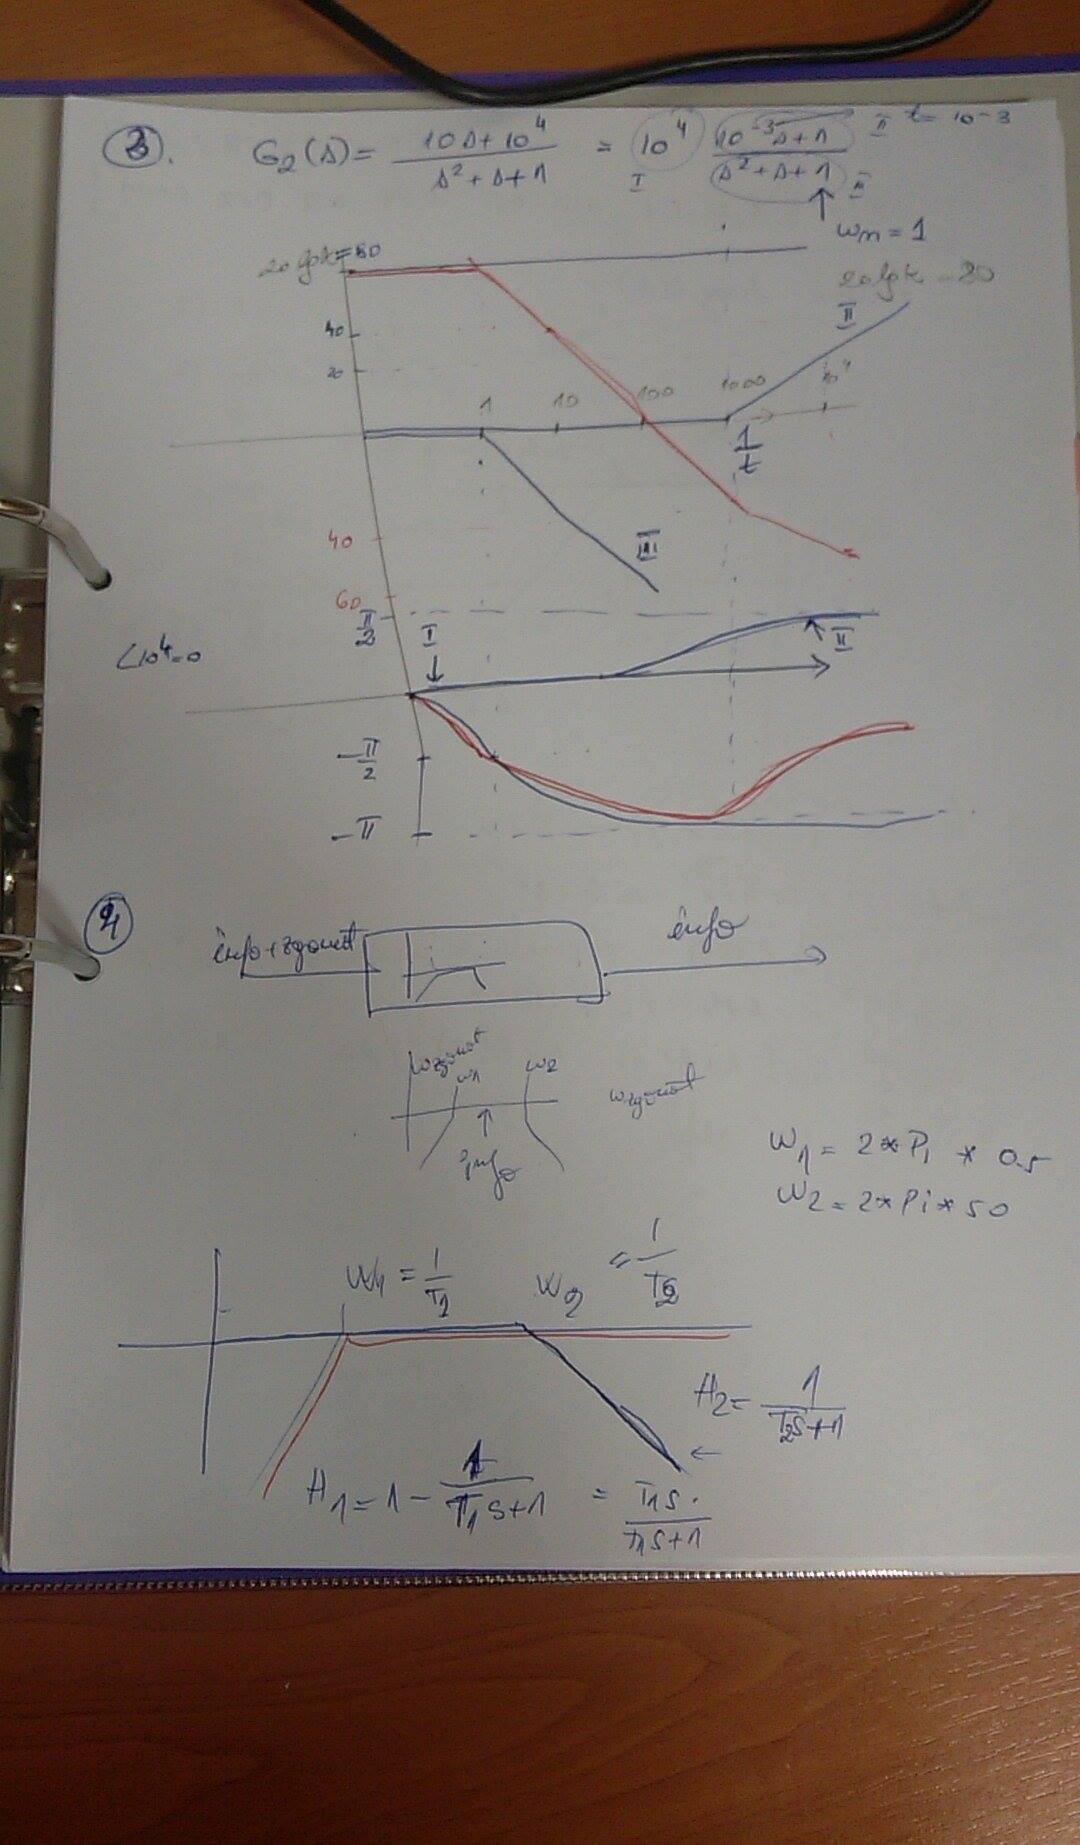 3. G2(s) = (10s + 10^4)/(s^2 + s + 1) = 10^4 (10^-3 s + 1)/(s^2 + s + 1) II t = 10^-3
I II
wn = 1
20 lgk = 80
20 lgk = 80
II
40
20
1 10 100 1000 10^4
1/t
40
III
60
π/2 I
II
<10^4=0
-π/2
-π
4
info+zgomot info
wzgomot w1 w2 wzgomot
info
w1 = 2*Pi * 0.5
w2 = 2*Pi*50
w1 = 1/T1 w2 = 1/T2
H2 = 1/(T2s+1)
H1 = 1 - 1/(T1s+1) = T1s/(T1s+1)